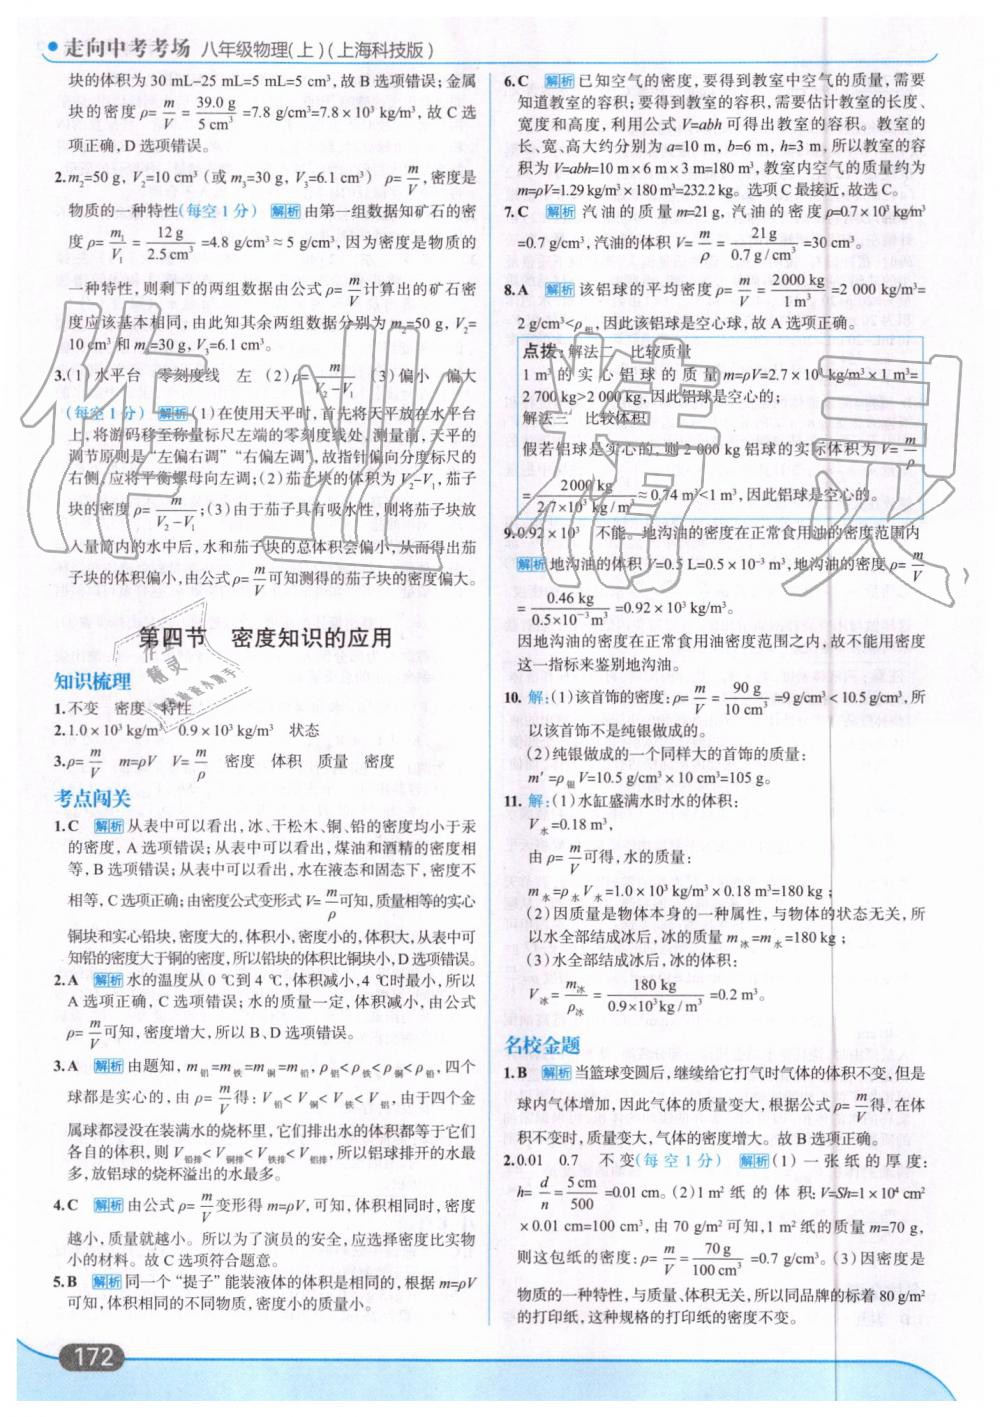 走向中考考场 八年级物理(上)(上海科技版)
块的体积为 30 mL-25 mL=5 mL=5 cm³,故 B 选项错误;金属
块的密度 ρ=m/V=39.0 g/5 cm³=7.8 g/cm³=7.8×10³ kg/m³,故 C 选
项正确,D 选项错误。
2.m₂=50 g,V₂=10 cm³(或 m₃=30 g,V₃=6.1 cm³) ρ=m/V,密度是
物质的一种特性(每空 1 分) 解析 由第一组数据知矿石的密
度 ρ=m₁/V₁=12 g/2.5 cm³=4.8 g/cm³≈5 g/cm³,因为密度是物质的
一种特性,则剩下的两组数据由公式 ρ=m/V 计算出的矿石密
度应该基本相同,由此知其余两组数据分别为 m₂=50 g,V₂=
10 cm³ 和 m₃=30 g,V₃=6.1 cm³。
3.(1)水平台 零刻度线 左 (2)ρ=m/(V₂-V₁) (3)偏小 偏大
(每空 1 分) 解析 (1)在使用天平时,首先将天平放在水平台
上,将游码移至称量标尺左端的零刻度线处,测量前,天平的
调节原则是“左偏右调”“右偏左调”,故指针偏向分度标尺的
右侧,应将平衡螺母向左调;(2)茄子块的体积为 V₂-V₁,茄子
块的密度 ρ=m/(V₂-V₁);(3)由于茄子具有吸水性,则将茄子块放
入量筒内的水中后,水和茄子块的总体积会偏小,从而得出茄
子块的体积偏小,由公式 ρ=m/V 可知测得的茄子块的密度偏大。
第四节 密度知识的应用
知识梳理
1.不变 密度 特性
2.1.0×10³ kg/m³ 0.9×10³ kg/m³ 状态
3.ρ=m/V m=ρV V=m/ρ 密度 体积 质量 密度
考点闯关
1.C 解析 从表中可以看出,冰、干松木、铜、铅的密度均小于汞
的密度,A 选项错误;从表中可以看出,煤油和酒精的密度相
等,B 选项错误;从表中可以看出,水在液态和固态下,密度不
相等,C 选项正确;由密度公式变形式 V=m/ρ 可知,质量相等的实心
铜块和实心铅块,密度大的,体积小,密度小的,体积大,从表中可
知铅的密度大于铜的密度,所以铅块的体积比铜块小,D 选项错误。
2.A 解析 水的温度从 0 ℃到 4 ℃,体积减小,4 ℃时最小,所以
A 选项正确,C 选项错误;水的质量一定,体积减小,由公式
ρ=m/V 可知,密度增大,所以 B、D 选项错误。
3.A 解析 由题知,m铝=m铁=m铜=m铅,ρ铝<ρ铁<ρ铜<ρ铅,四个
球都是实心的,由 ρ=m/V 得:V铅<V铜<V铁<V铝,由于四个金
属球都浸没在装满水的烧杯里,它们排出水的体积都等于它们
各自的体积,则 V铅排<V铜排<V铁排<V铝排,所以铝球排开的水最
多,放铝球的烧杯溢出的水最多。
4.C 解析 由公式 ρ=m/V 变形得 m=ρV,可知,体积相同时,密度
越小,质量就越小。所以为了演员的安全,应选择密度比实物
小的材料。故 C 选项符合题意。
5.B 解析 同一个“提子”能装液体的体积是相同的,根据 m=ρV
可知,体积相同的不同物质,密度小的质量小。
6.C 解析 已知空气的密度,要得到教室中空气的质量,需要
知道教室的容积;要得到教室的容积,需要估计教室的长度、
宽度和高度,利用公式 V=abh 可得出教室的容积。教室的
长、宽、高大约分别为 a=10 m,b=6 m,h=3 m,所以教室的容
积为 V=abh=10 m×6 m×3 m=180 m³,教室内空气的质量约为
m=ρV=1.29 kg/m³×180 m³=232.2 kg。选项 C 最接近,故选 C。
7.C 解析 汽油的质量 m=21 g,汽油的密度 ρ=0.7×10³ kg/m³
=0.7 g/cm³,汽油的体积 V=m/ρ=21 g/0.7 g/cm³=30 cm³。
8.A 解析 该铝球的平均密度 ρ=m/V=2 000 kg/1 m³=2 000 kg/m³=
2 g/cm³<ρ铝,因此该铝球是空心球,故 A 选项正确。
点拨:解法二 比较质量
1 m³ 的实心铝球的质量 m=ρV=2.7×10³ kg/m³×1 m³=
2 700 kg>2 000 kg,因此铝球是空心的;
解法三 比较体积
假若铝球是实心的,则 2 000 kg 铝球的实际体积为 V=m/ρ
=2 000 kg/2.7×10³ kg/m³≈0.74 m³<1 m³,因此铝球是空心的。
9.0.92×10³ 不能。地沟油的密度在正常食用油的密度范围内
解析 地沟油的体积 V=0.5 L=0.5×10⁻³ m³,地沟油的密度 ρ=m/V
=0.46 kg/0.5×10⁻³ m³=0.92×10³ kg/m³。
因地沟油的密度在正常食用油密度范围之内,故不能用密度
这一指标来鉴别地沟油。
10.解:(1)该首饰的密度:ρ=m/V=90 g/10 cm³=9 g/cm³<10.5 g/cm³,所
以该首饰不是纯银做成的。
(2)纯银做成的一个同样大的首饰的质量:
m′=ρ银V=10.5 g/cm³×10 cm³=105 g。
11.解:(1)水缸盛满水时水的体积:
V水=0.18 m³,
由 ρ=m/V 可得,水的质量:
m水=ρ水V水=1.0×10³ kg/m³×0.18 m³=180 kg;
(2)因质量是物体本身的一种属性,与物体的状态无关,所
以水全部结成冰后,冰的质量 m冰=m水=180 kg;
(3)水全部结成冰后,冰的体积:
V冰=m冰/ρ冰=180 kg/0.9×10³ kg/m³=0.2 m³。
名校金题
1.B 解析 当篮球变圆后,继续给它打气时气体的体积不变,但是
球内气体增加,因此气体的质量变大,根据公式 ρ=m/V 得,在体
积不变时,质量变大,气体的密度增大。故 B 选项正确。
2.0.01 0.7 不变(每空 1 分) 解析 (1)一张纸的厚度:
h=d/n=5 cm/500=0.01 cm。(2)1 m² 纸的体积:V=Sh=1×10⁴ cm²
×0.01 cm=100 cm³,由 70 g/m² 可知,1 m² 纸的质量 m=70 g,
则这包纸的密度:ρ=m/V=70 g/100 cm³=0.7 g/cm³。(3)因密度是
物质的一种特性,与质量、体积无关,所以同品牌的标着 80 g/m²
的打印纸,这种规格的打印纸的密度不变。
172
作业精灵